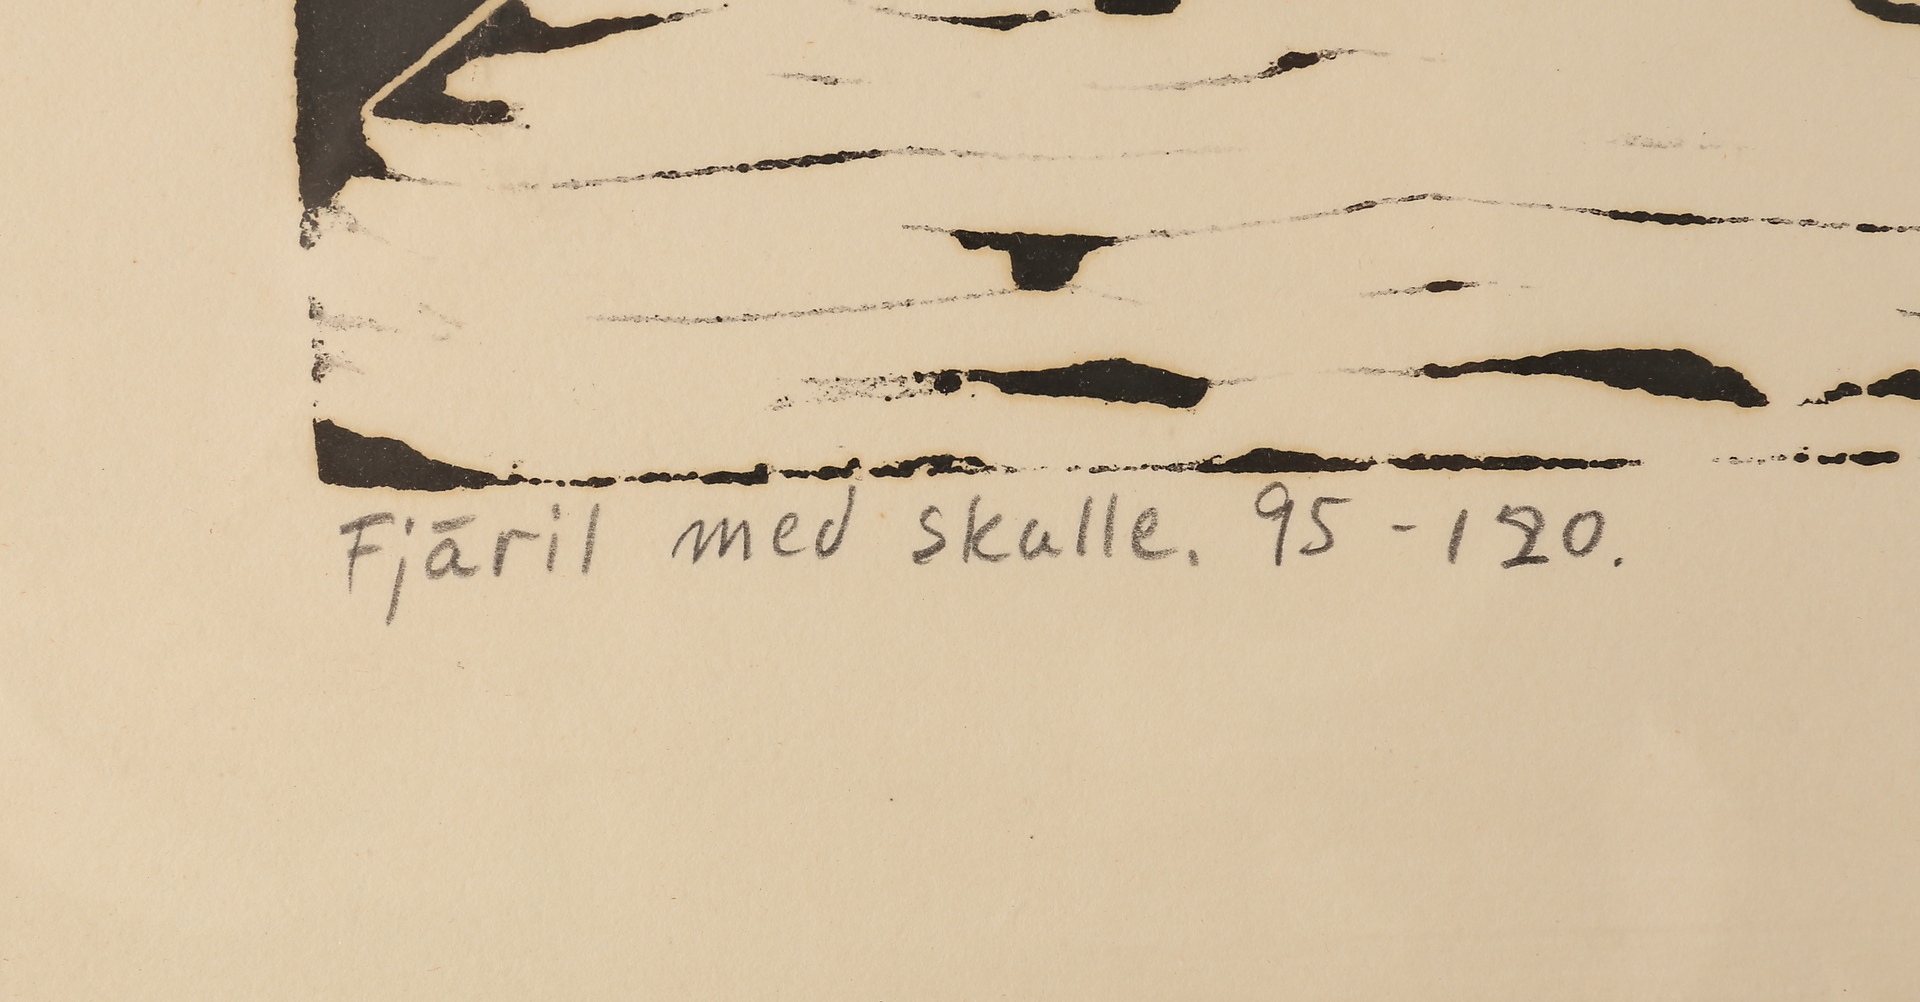 Fjäril med skalle. 95-120.